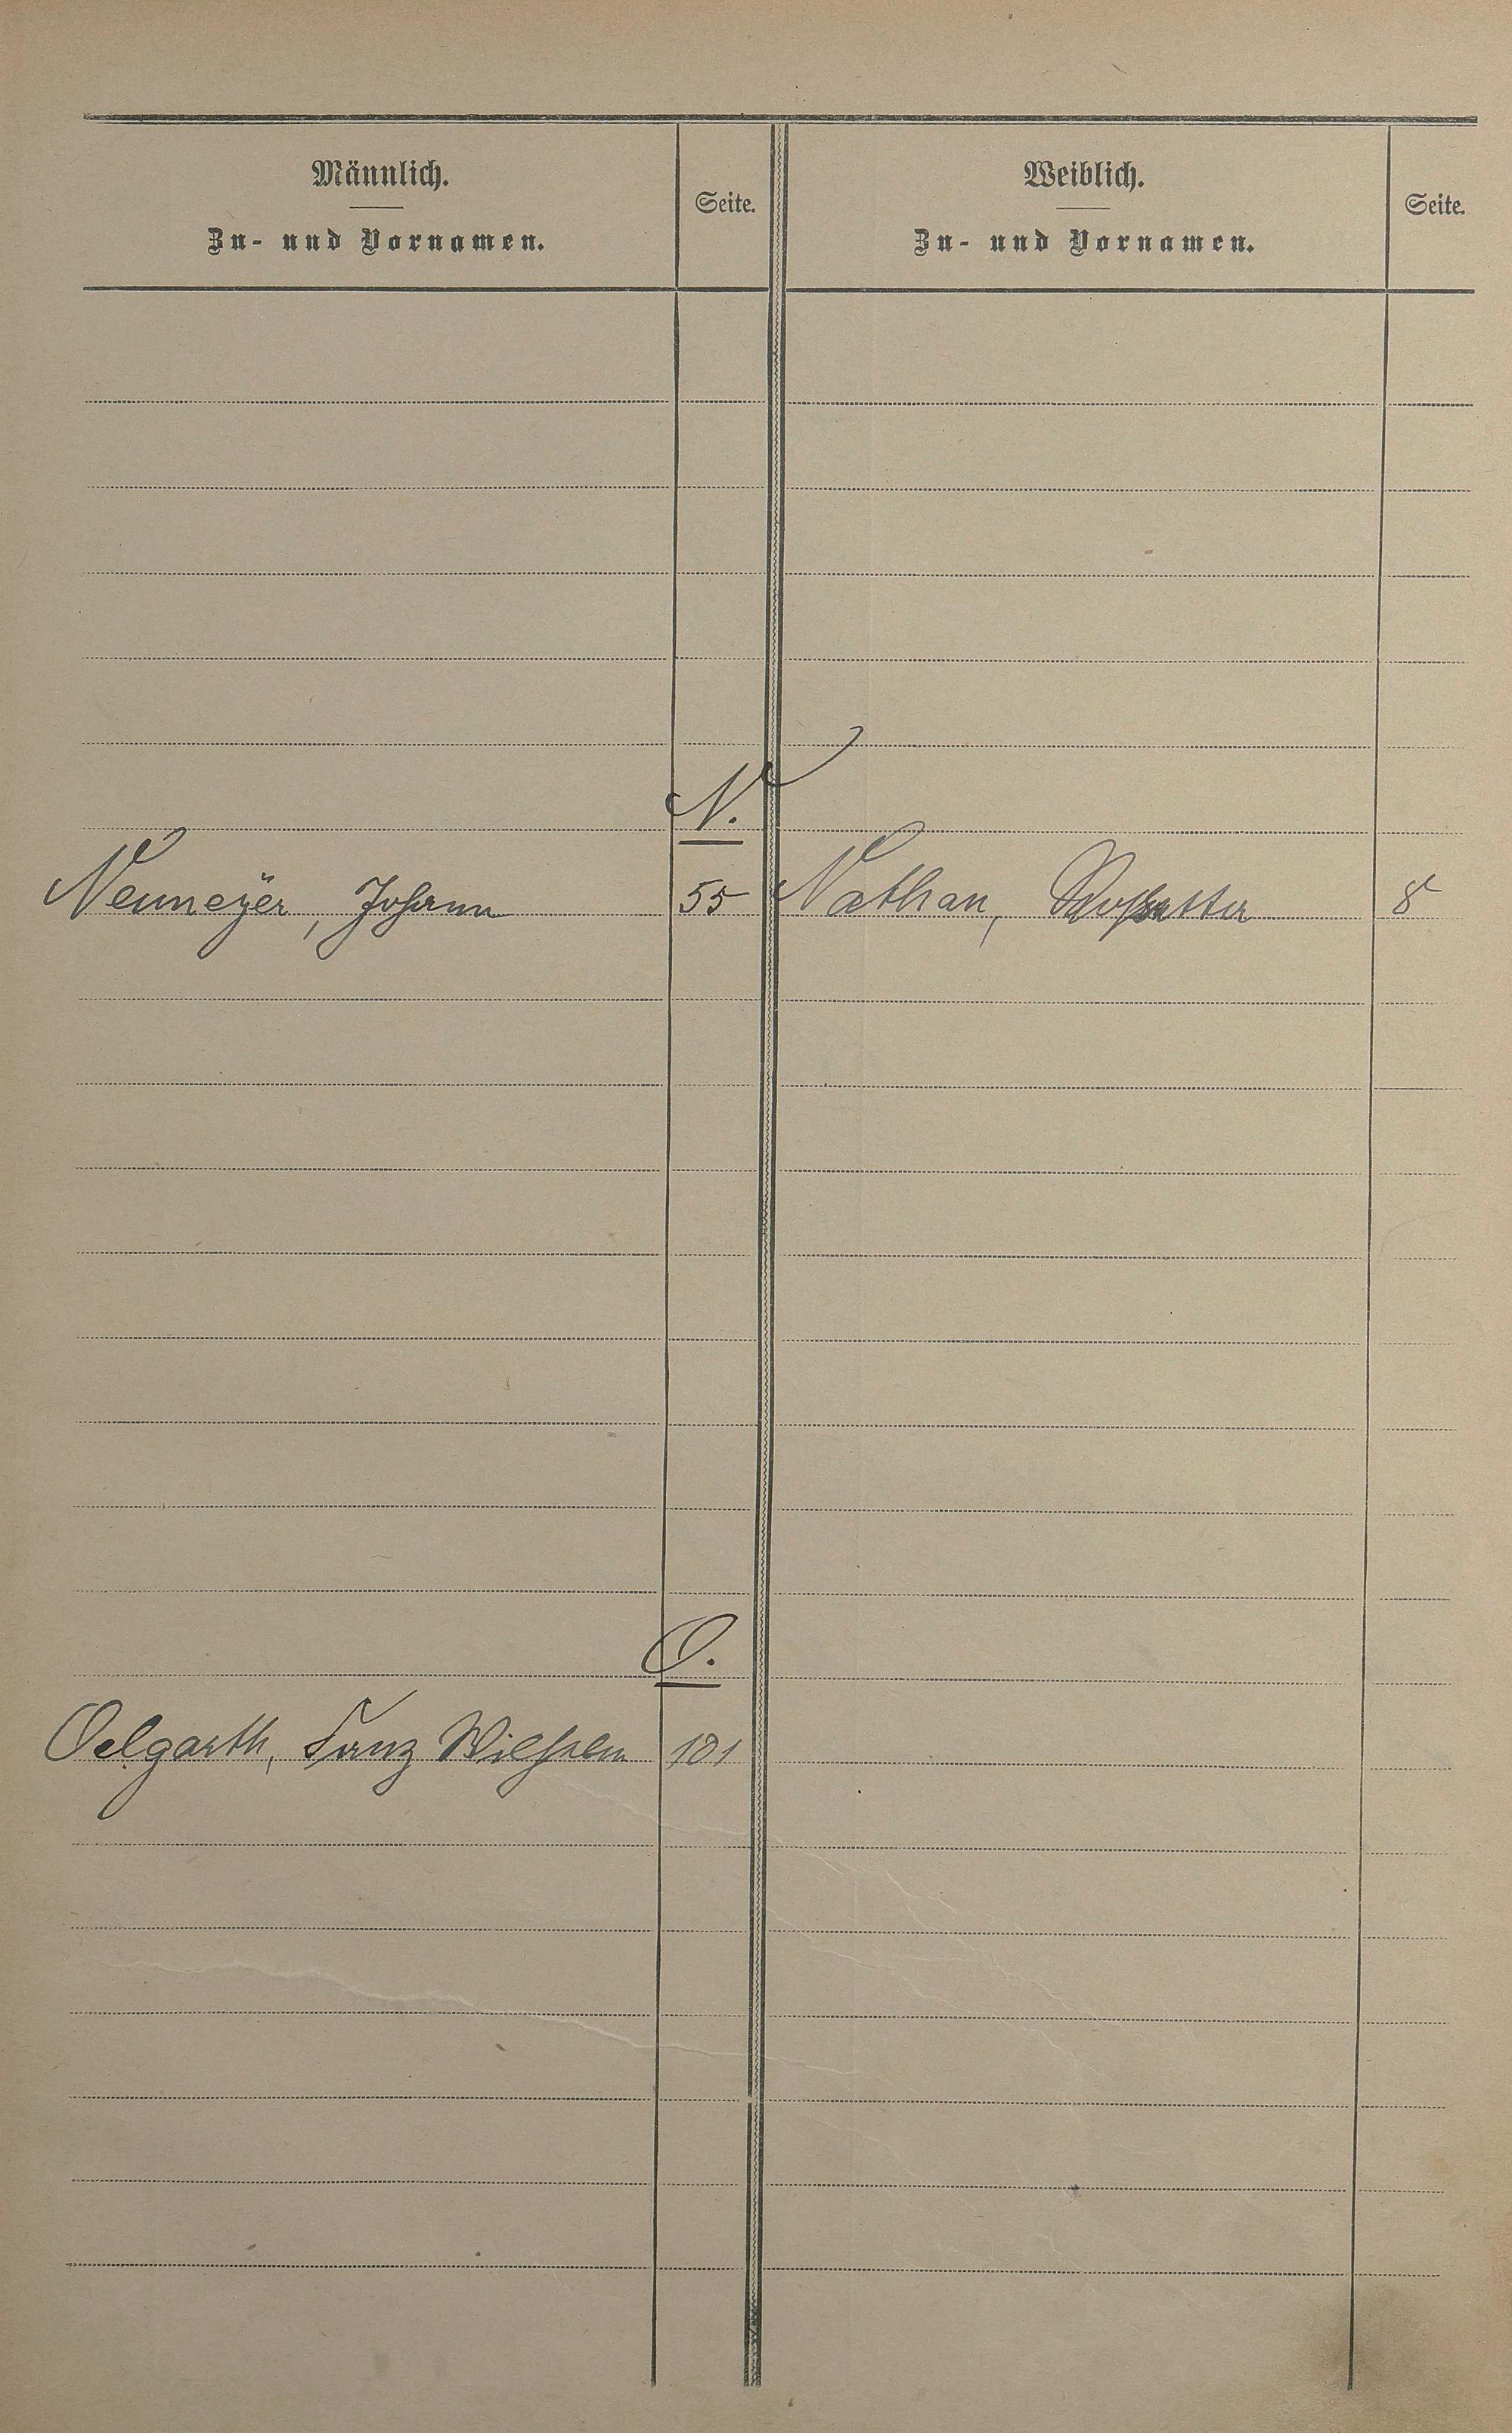 Männlich.
Zu- und Vornamen.
Seite.
Weiblich.
Zu- und Vornamen.
Seite.
N.
Neumeÿer, Johann 55 Nathan, 8
O.
Oelgarth, Franz Wilhelm 101